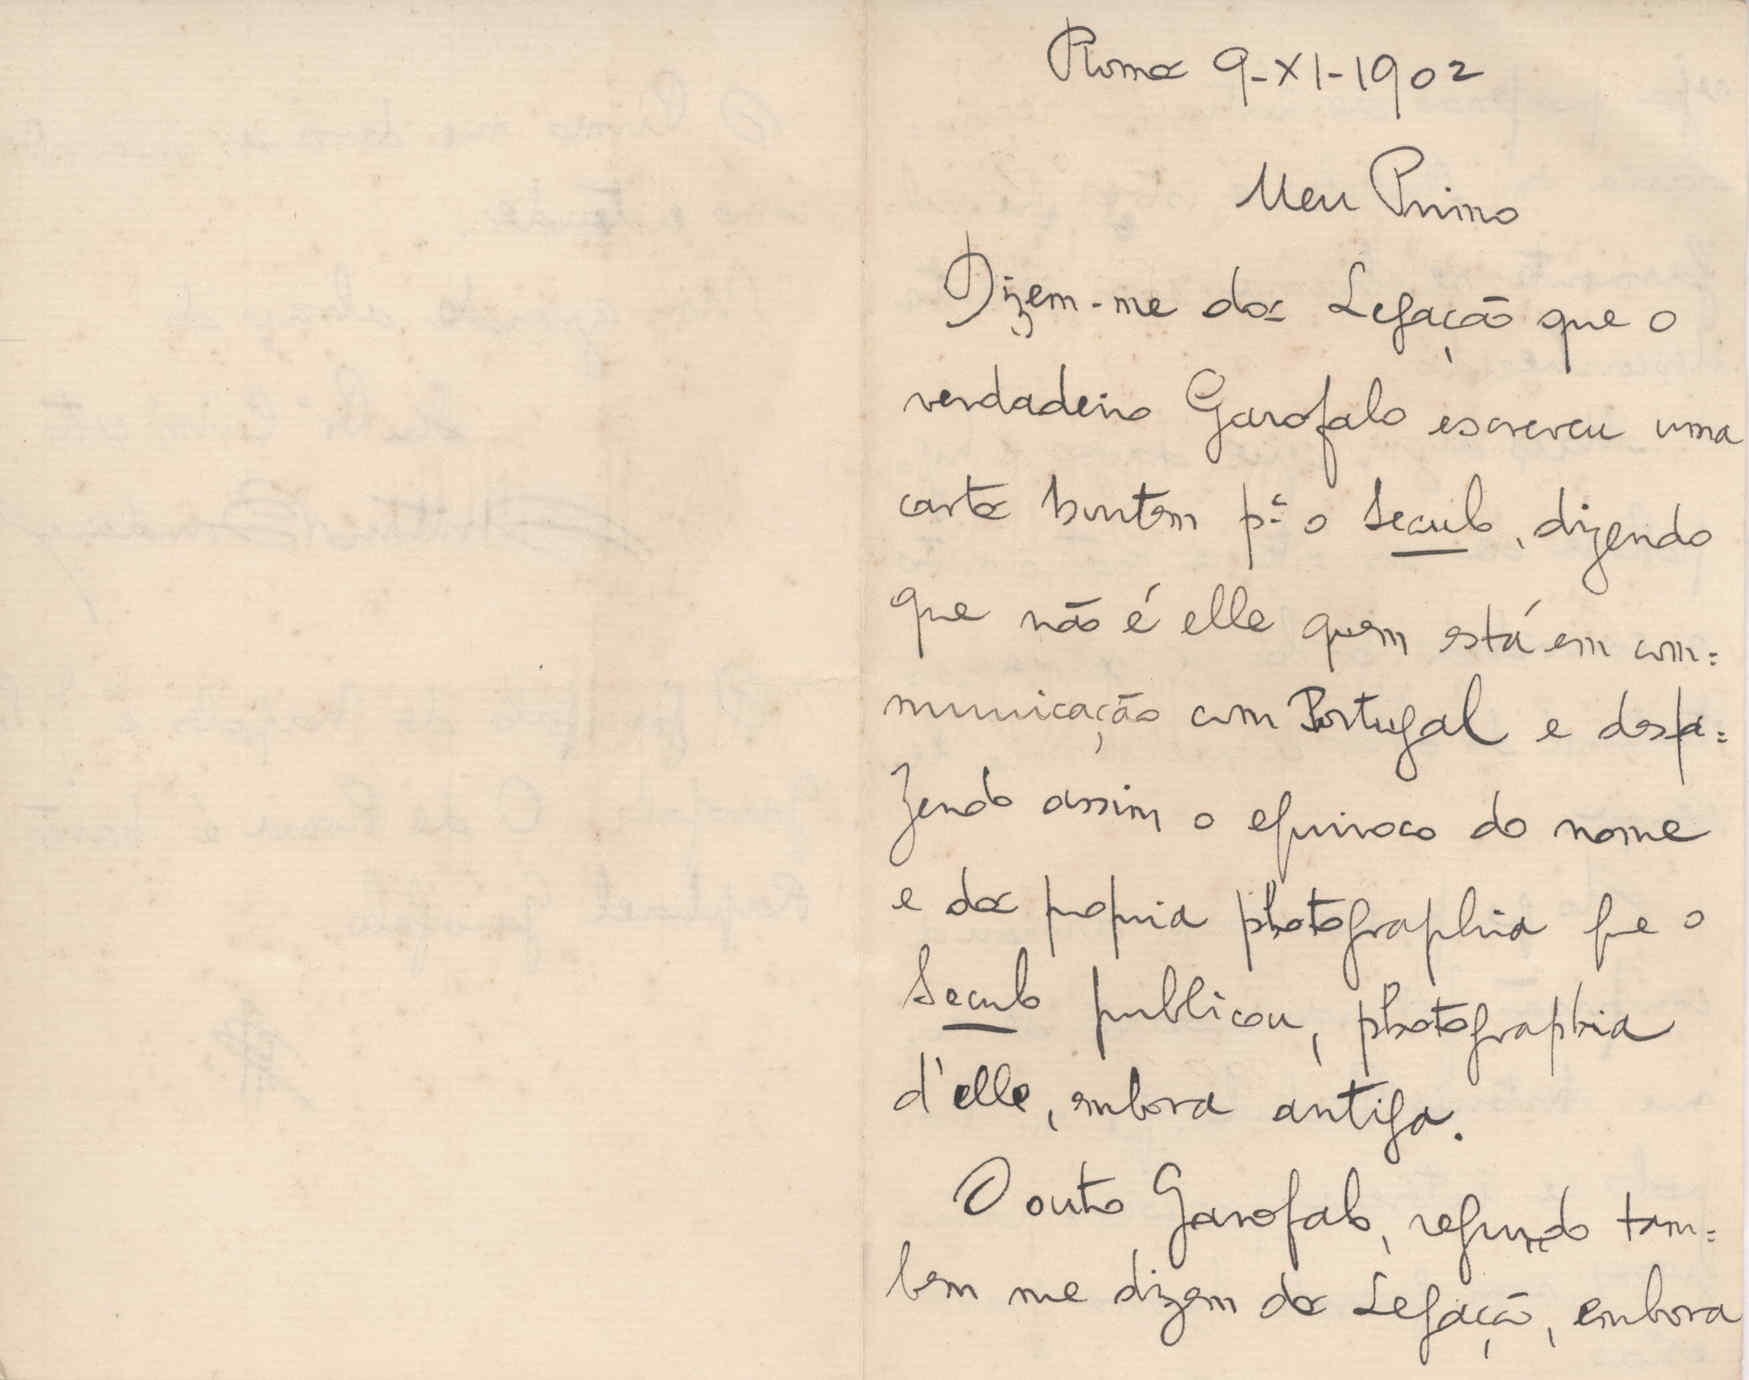 Roma 9-XI-1902
Meu Primo
Dizem-me da Legação que o
verdadeiro Garofalo escreveu uma
carta hontem pª o Seculo, dizendo
que não é elle quem está em com=
municação com Portugal e desfa=
zendo assim o equivoco do nome
e da propria photographia que o
Seculo publicou, photographia
d'elle, embora antiga.
O outro Garofalo, segundo tam=
bem me dizem da Legação, embora